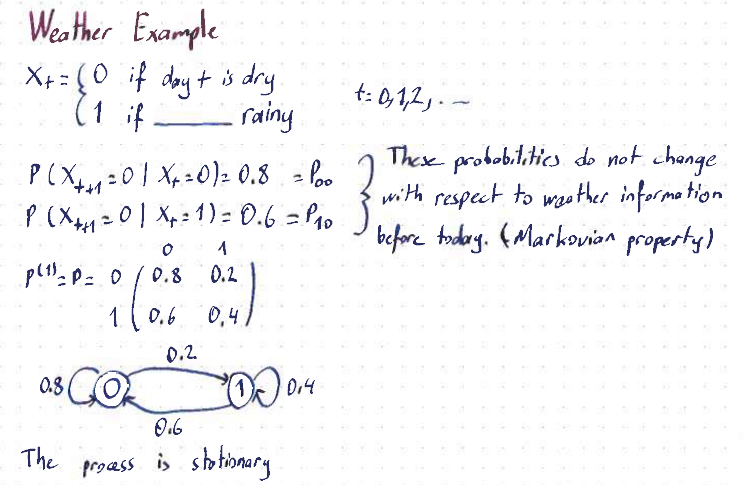 Weather Example
X_t = { 0 if day t is dry
1 if ______ rainy
t = 0,1,2, . —
P(X_{t+1} = 0 | X_t = 0) = 0.8 = P_{00}
P(X_{t+1} = 0 | X_t = 1) = 0.6 = P_{10}
} These probabilities do not change
with respect to weather information
before today. (Markovian property)
0 1
P^{(1)} = P = 0 ( 0.8 0.2 )
1 ( 0.6 0.4 )
0.2
0.8 0 1 0.4
0.6
The process is stationary